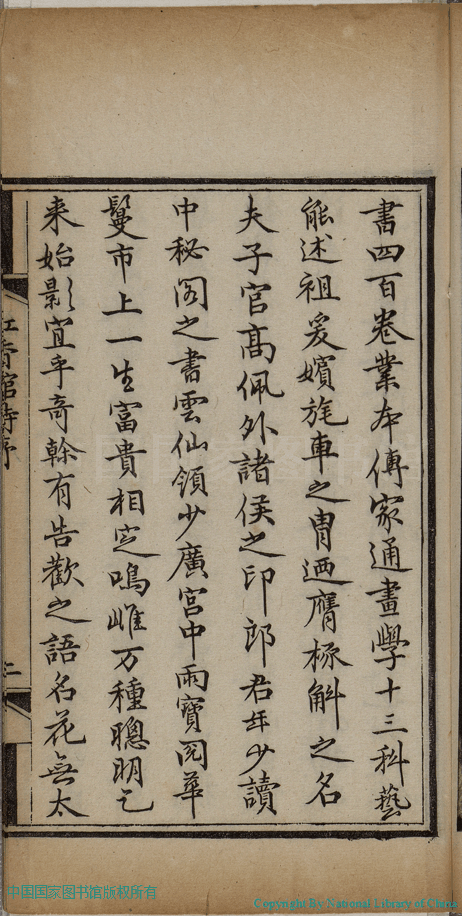 書四百卷業本傳家通畫學十三科藝
能述祖爰嬪旄車之胄迺膺極斛之名
夫子官高佩外諸侯之印郎君年少讀
中秘閣之書雲仙領少廣宮中兩寶閱華
鬘市上一生富貴相定鳴雌万種聰明乞
来始影宜乎奇翰有告歡之語名花無太
紅香館詩序
二
中国国家图书馆版权所有
Copyright By National Library of China